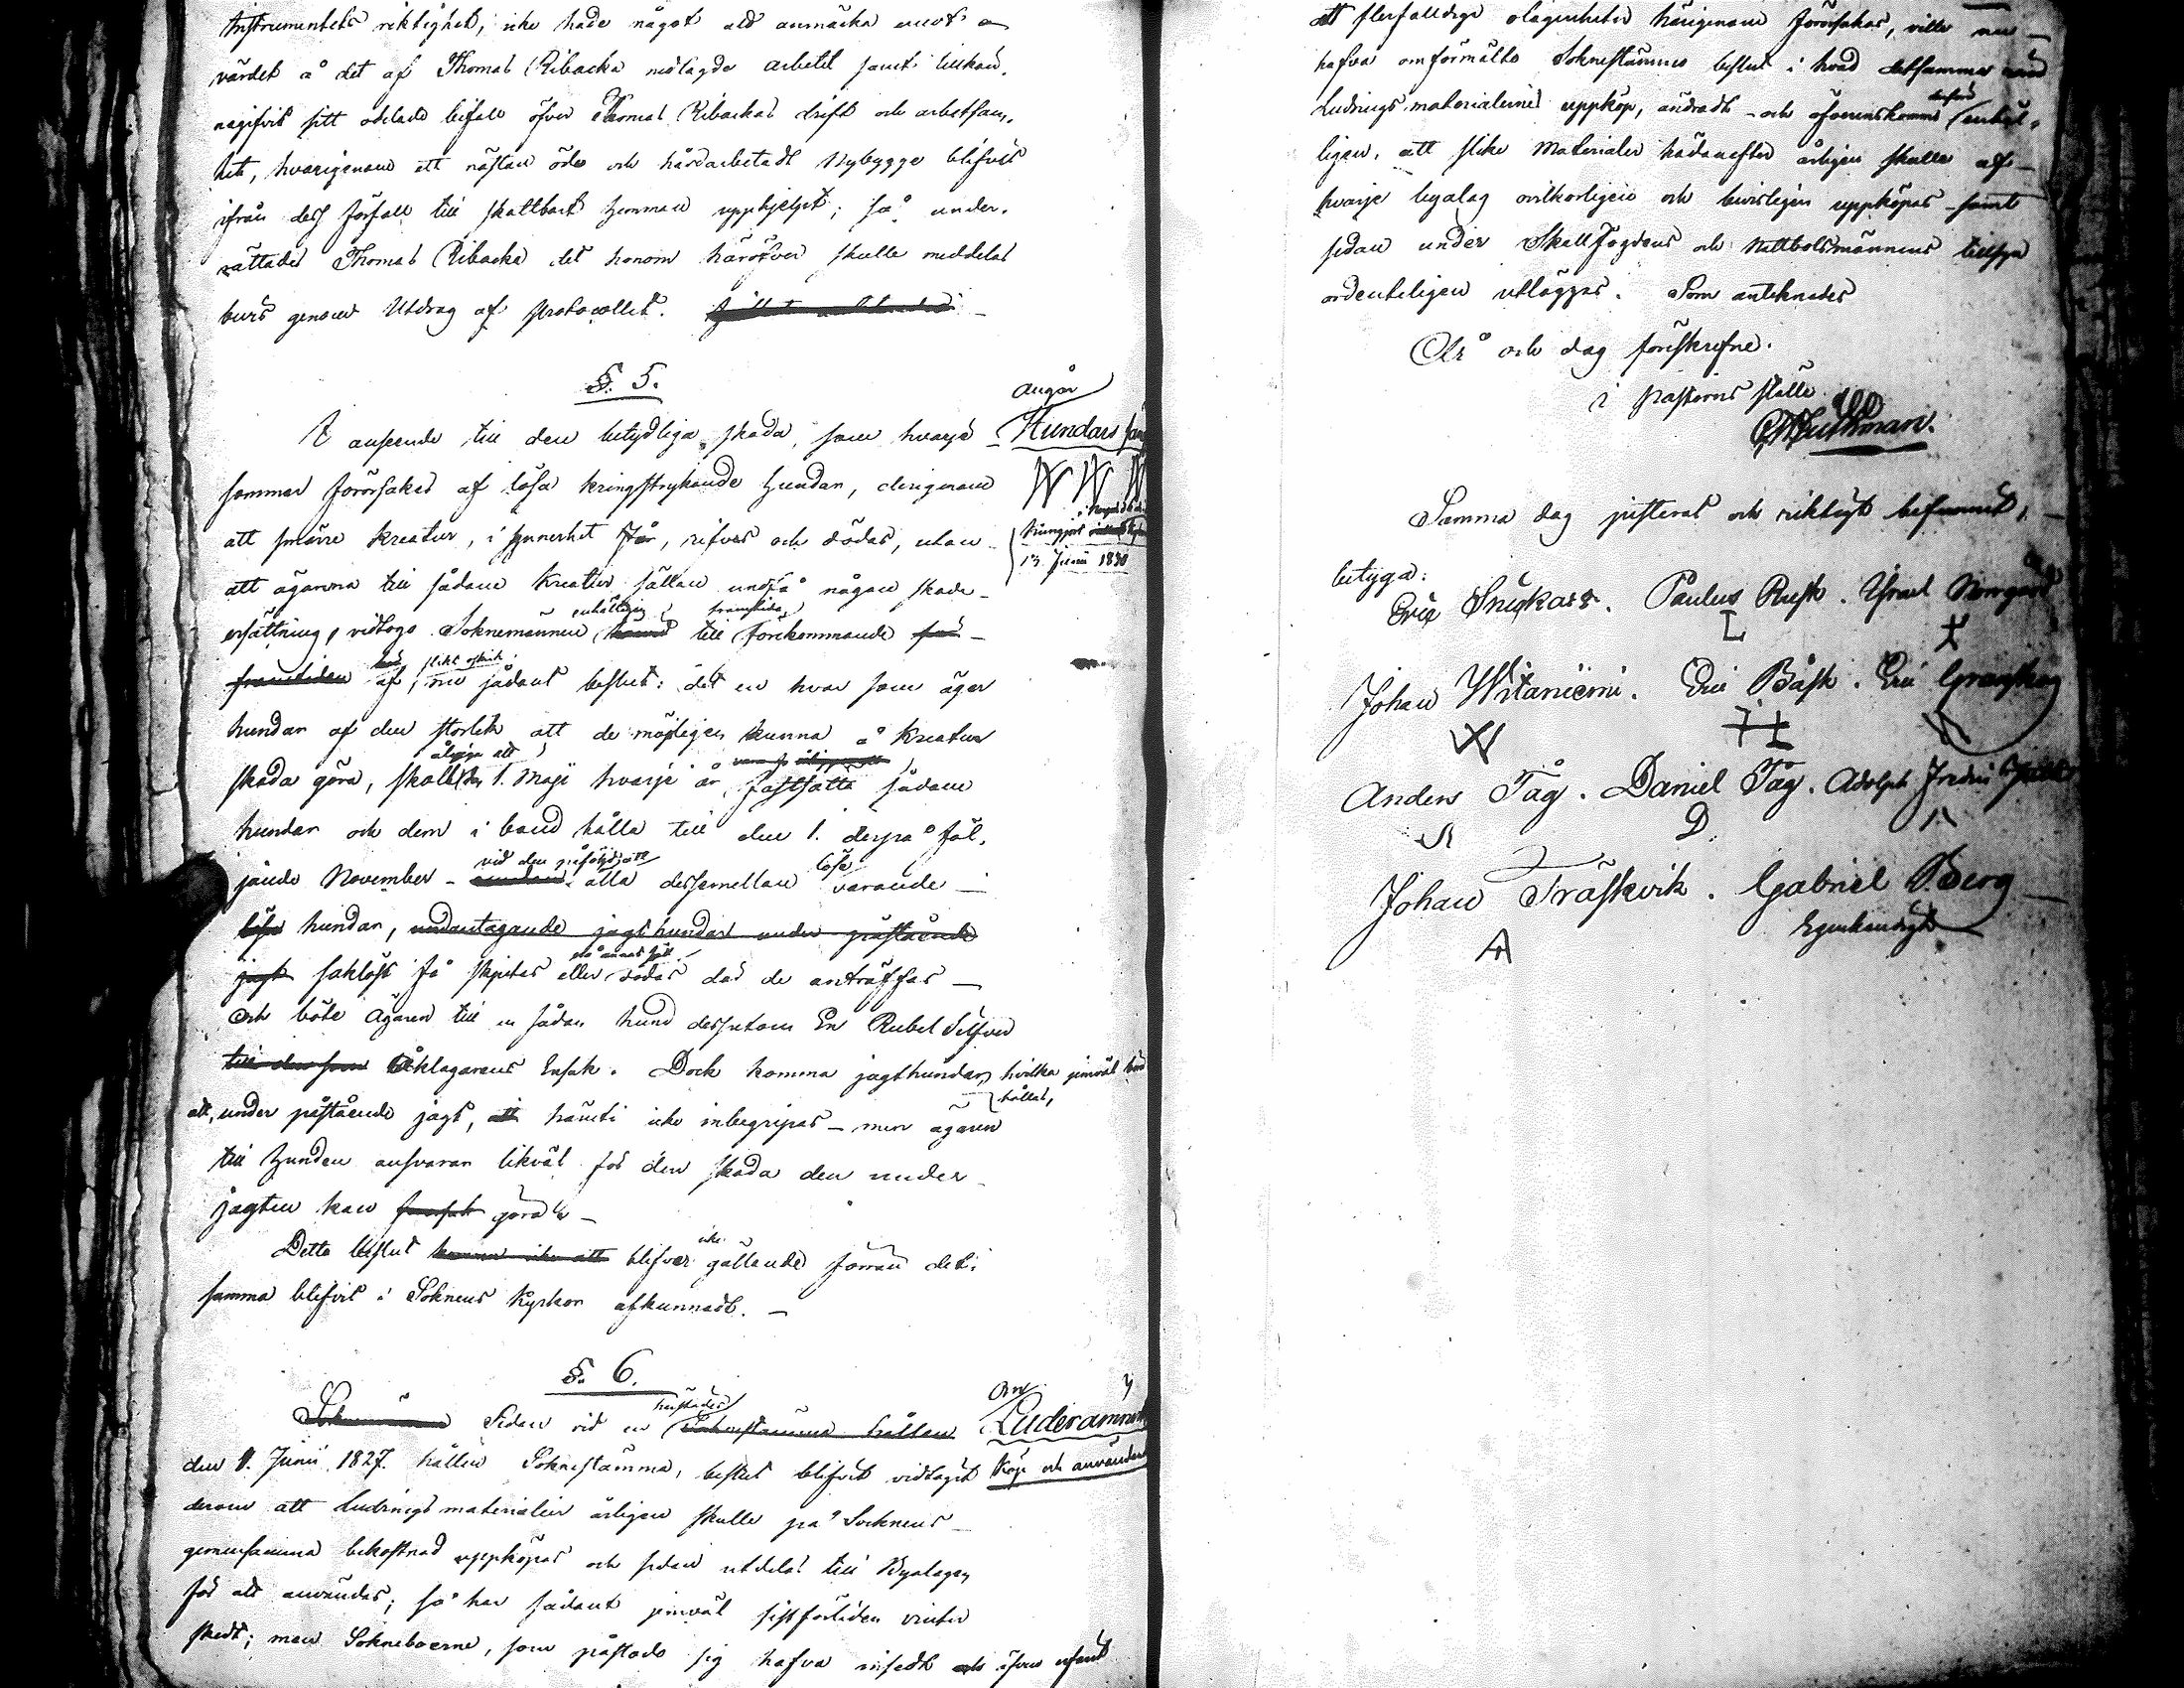 Instrumentets riktighet, icke hade något att anmärka emot
värdet å det af Thomas Ribacka nedlagde arbetet samt tillkän,
nagifvit sitt odelade bifall öfver Thomas Ribackas drift och arbetsam,
het, hvarigenom ett nästan öde och hårdarbetadt Nybygge blifvit
ifrån dess förfall till skattbart hemman upphjelpt; så under,
rättades Thomas Ribacka det honom häröfver skulle meddelas
bevis genom Utdrag af Protocollet.
§. 5.
Angår
Hundars
Kungjort
13 Junii 1830
I anseende till den betydliga skada, som hvarje
sommar förorsakas af lösa kringstrykande hundar, derigenom
att smärre kreatur, i synnerhet Får, rifvas och dödas, utan
att ägarena till sådane Kreatur sällan undfå någon skade-
ersättning, vidtogo Soknemännen enhälligt till framtida förekommande
framtiden af slikt ofärd sådant beslut: det en hvar som äger
hundar af den storlek att de möjligen kunna å Kreatur
skada göra, skall åligga att den 1. Maji hvarje år fastsätta sådane
hundar och dem i band hålla till den 1. derpå föl,
jande November - vid den påföljd att alla dessemellan löse varande
löse hundar, undantagande jagthundar under påstående
jagt saklöst få skjutas eller på annat sätt dödas der de anträffas
och böte ägaren till en sådan hund dessutom En Rubel Silfver
till den som Åklagarens Ensak. Dock komma jagthundar, hvilka jemväl bör hållas,
att, under påstående jagt, att häruti icke inbegripas - men ägaren
till hunden ansvarar likväl för den skada den under
jagten kan göra.
Detta beslut blifver icke gällande förrän det,
samma blifvit i Soknens Kyrkor afkunnadt.
§. 6.
Om
Luderämnens
Köp och användande
Sedan vid en härstädes Soknestämma hållen
den 1. Junii 1827. hållen Soknestämma, beslut blifvit vidtaget
derom att ludringsmaterialier årligen skulle på Socknens
gemensamma bekostnad uppköpas och sedan utdelas till Byalagen
för att användas; så har sådant jemväl sistförliden vinter
skedt; men Sokneboerne, som påstodo sig hafva insedt och äfven
att flerfalldige olägenheter härigenom förorsakas, ville nu
hafva omförmälte Soknestämmas beslut i hvad detsamma
Ludringsmaterialiernes uppköp, ändradt - och öfverenskommo derföre enhäl,
ligen, att slike Materialier hädanefter årligen skulle af
hvarje byalag ovilkorligen och bevisligen uppköpas samt
sedan under Skallfogdens och Nattbolsmännens tillsyn
ordenteligen utläggas. Som antecknades
År och dag förskrefne.
i Pastorns ställe
Samma dag justerat och riktigt befunnit,
betyga:
Eric Snickars. Paulus Rusk. Israel Norrgård
Johan Witaniemi. Eric Båsk. Eric Granskog
Anders Tåg. Daniel Tåg. Adolph Fredric
D.
Johan Träskvik. Gabriel Berg
A
Egenhändigt